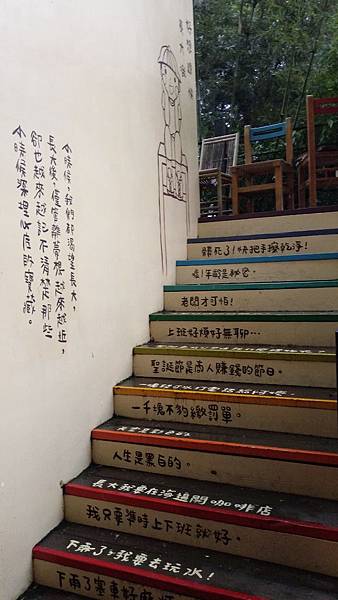 小時候，我們都渴望長大，
長大後，儘管離夢想越來越近，
卻也越來越記不清楚那些
小時候深埋心底的寶藏。
髒死了！快把手擦乾淨！
噓！年齡是秘密。
老闆才可怕！
上班好煩好無聊…
聖誕節是商人賺錢的節日。
一千塊不夠繳罰單。
人生是黑白的。
長大我要在海邊開咖啡店
我只要準時上下班就好。
下雨了，我要去玩水！
下雨了塞車好麻煩